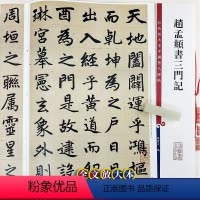 趙孟頫書三門記
天地闔闢運乎鴻樞
而乾坤為之戶日月
出入經乎黃道而卯
酉為之門是故建設
琳宮摹憲玄象外則
周垣之聯屬靈星之
全文放大本